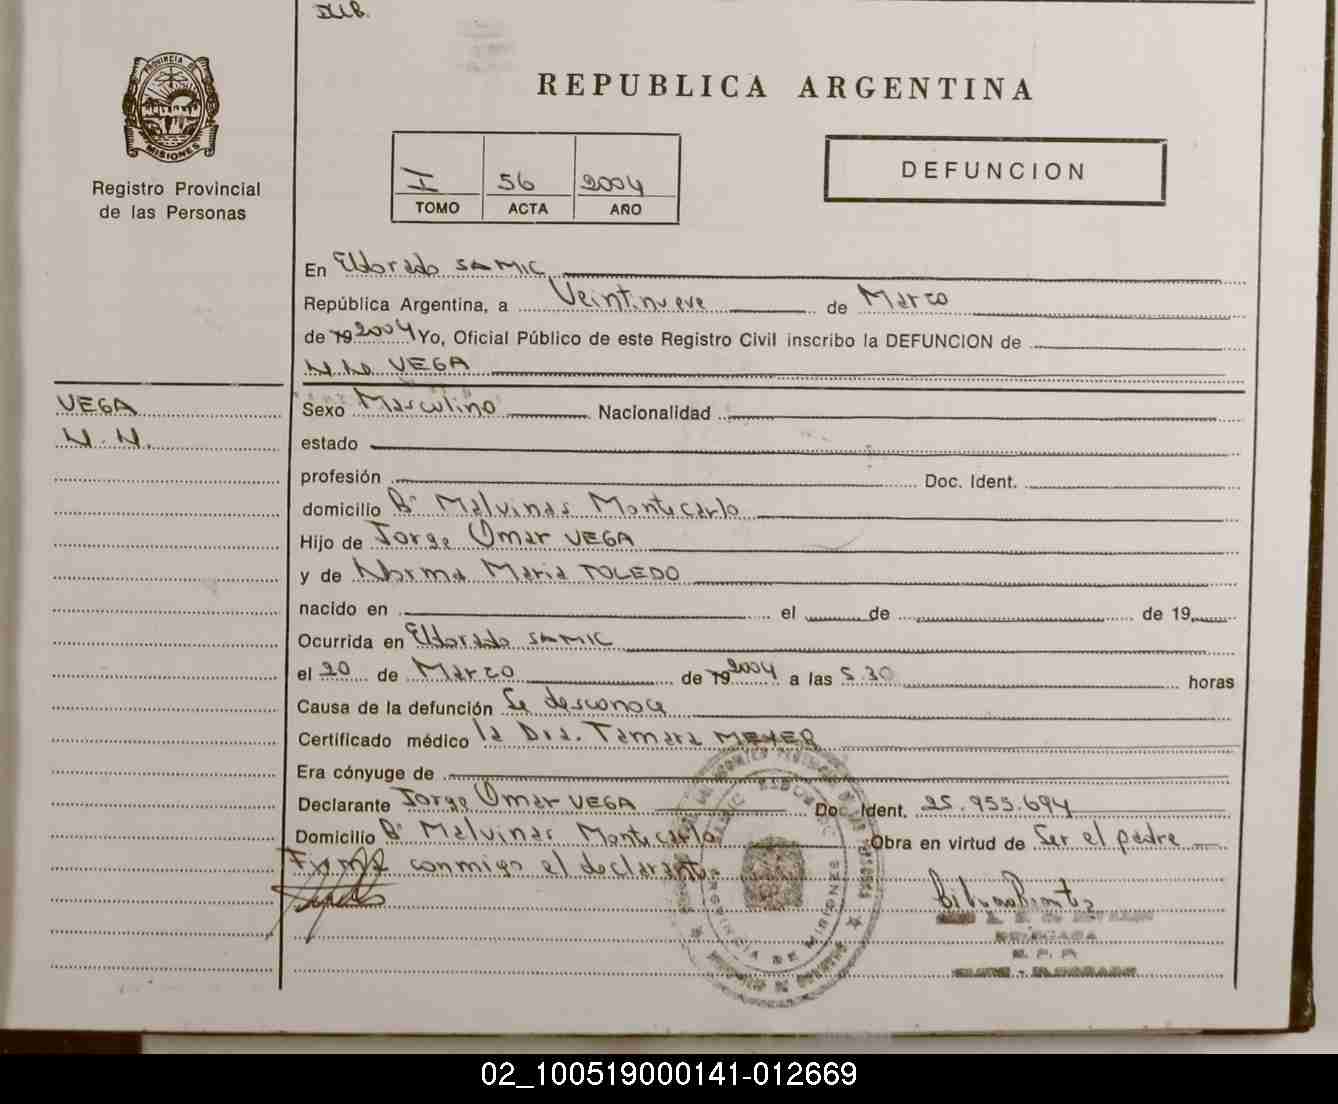 REPUBLICA ARGENTINA
PROVINCIA DE
MISIONES
Registro Provincial
de las Personas
I 56 2004
TOMO ACTA AÑO
DEFUNCION
En Eldorado SAMIC
República Argentina, a Veintinueve de Marzo
de 19 2004 Yo, Oficial Público de este Registro Civil inscribo la DEFUNCION de
N.N. VEGA
VEGA
N.N.
Sexo Masculino Nacionalidad
estado
profesión Doc. Ident.
domicilio Bº Malvinas Montecarlo
Hijo de Jorge Omar VEGA
y de Norma Maria TOLEDO
nacido en el de de 19
Ocurrida en Eldorado SAMIC
el 20 de Marzo de 19 2004 a las 5.30 horas
Causa de la defunción Se desconoce
Certificado médico la Dra. Tamara MEYER
Era cónyuge de
Declarante Jorge Omar VEGA Doc. Ident. 25.955.694
Domicilio Bº Malvinas Montecarlo Obra en virtud de Ser el padre
Firma conmigo el declarante
PROVINCIA DE MISIONES
DELEGADA
02_100519000141-012669